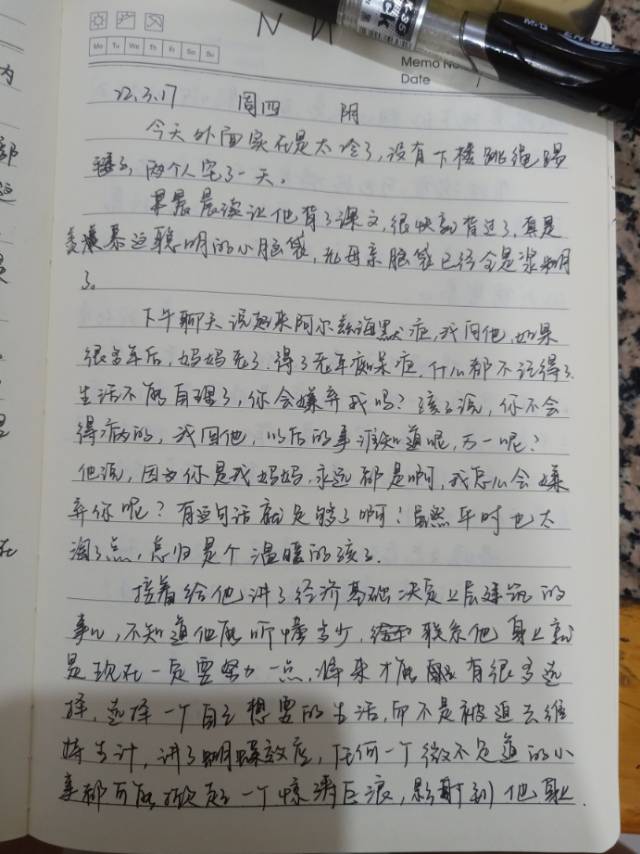 Mo Tu We Th Fr Sa Su
Memo No.
Date
22.3.17 周四 阴
今天外面实在是太冷了,没有下楼跳绳踢
毽子,两个人宅了一天。
早晨晨读让他背了课文,很快就背过了,真是
羡慕这聪明的小脑袋,老母亲脑袋已经全是浆糊
了。
下午聊天说起来阿尔兹海默症,我问他,如果
很多年后,妈妈老了,得了老年痴呆症,什么都不记得了,
生活不能自理了,你会嫌弃我吗?孩子说,你不会
得病的,我问他,以后的事谁知道呢,万一呢?
他说,因为你是我妈妈,永远都是啊,我怎么会嫌
弃你呢?有这句话就足够了啊!虽然平时也太
淘了点,总归是个温暖的孩子.
接着给他讲了经济基础决定上层建筑的
事儿,不知道他能听懂多少,联系他身上就
是现在一定要努力一点,将来才能有很多选
择,选择一个自己想要的生活,而不是被迫去维
持生计,讲了蝴蝶效应,任何一个微不足道的小
事都可能掀起一个惊涛巨浪,影射到他身上.